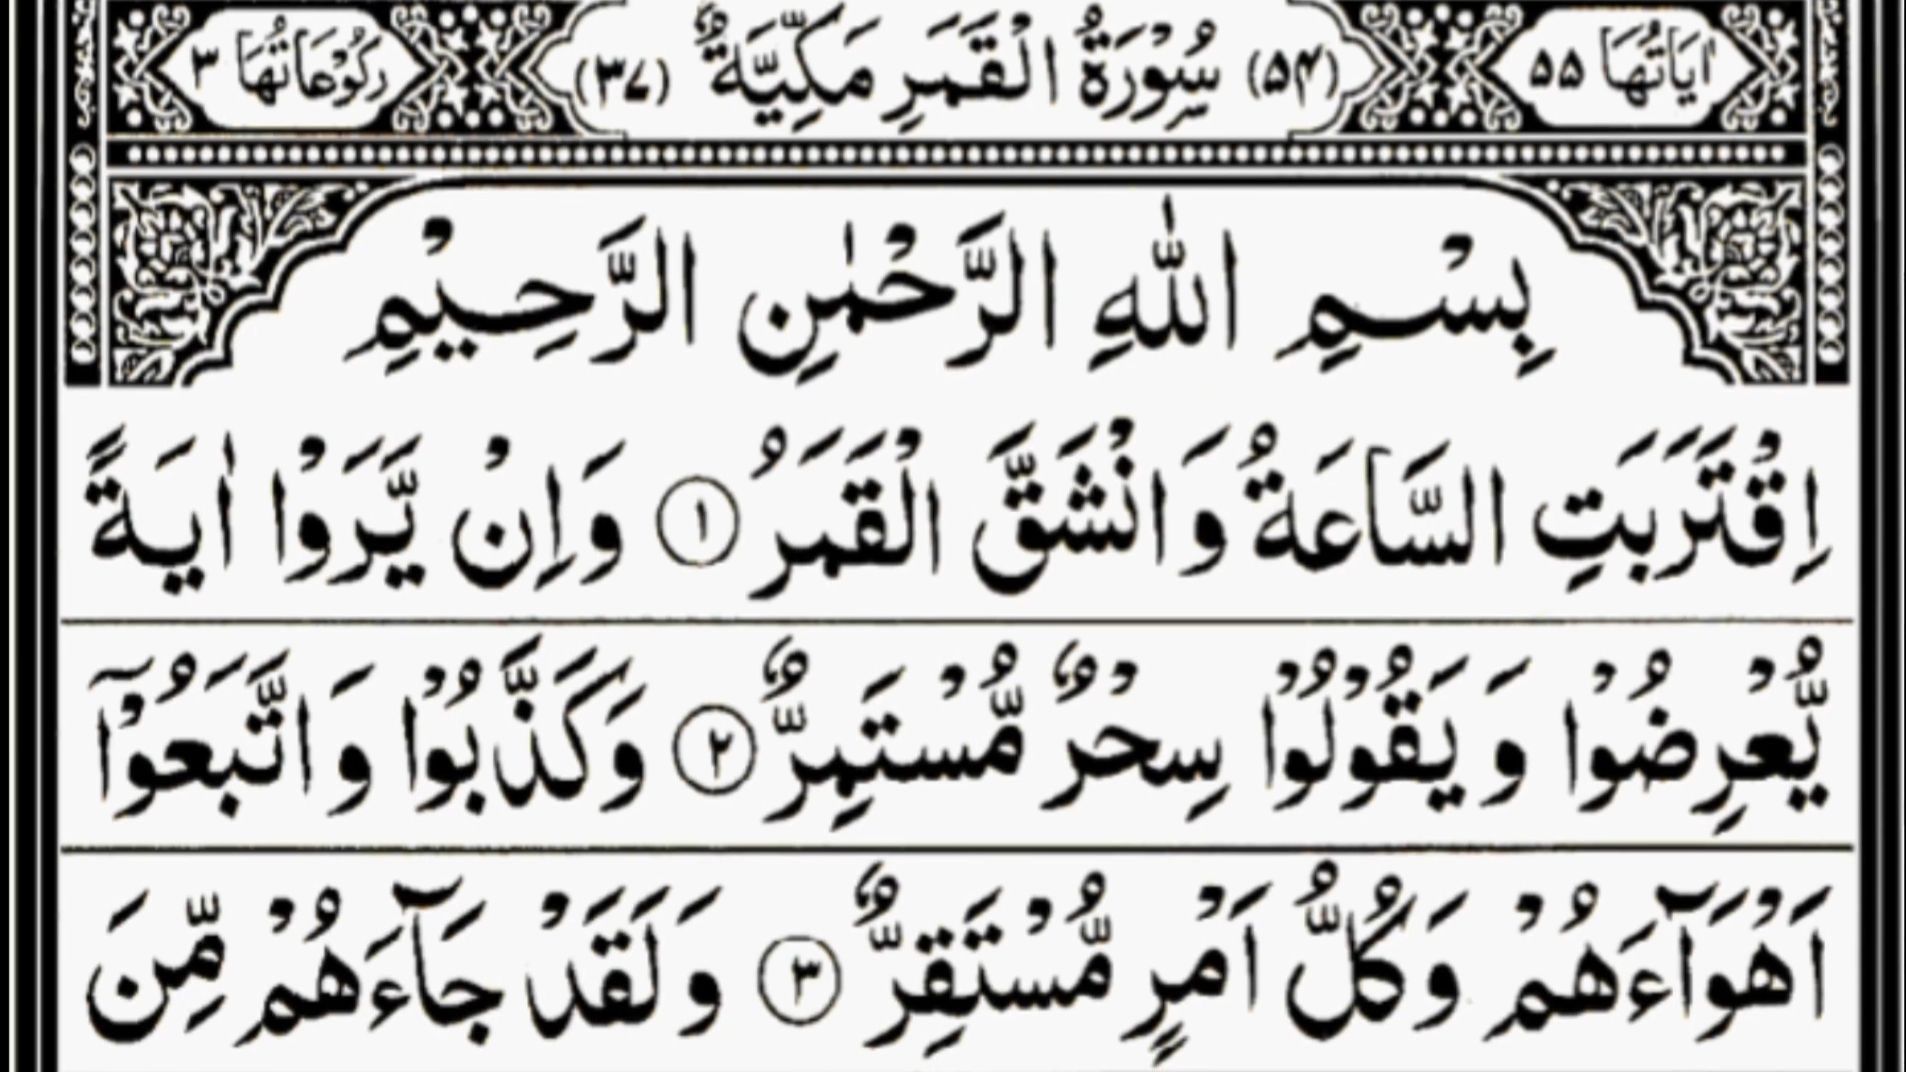 اٰيَاتُهَا ۵۵ (۵۴) سُوْرَةُ الْقَمَرِ مَكِّيَّةٌ (۳۷) رُكُوْعَاتُهَا ۳
بِسْمِ اللّٰهِ الرَّحْمٰنِ الرَّحِيْمِ
اِقْتَرَبَتِ السَّاعَةُ وَانْشَقَّ الْقَمَرُ ① وَاِنْ يَّرَوْا اٰيَةً
يُّعْرِضُوْا وَيَقُوْلُوْا سِحْرٌ مُّسْتَمِرٌّ ② وَكَذَّبُوْا وَاتَّبَعُوْۤا
اَهْوَآءَهُمْ وَكُلُّ اَمْرٍ مُّسْتَقِرٌّ ③ وَلَقَدْ جَآءَهُمْ مِّنَ